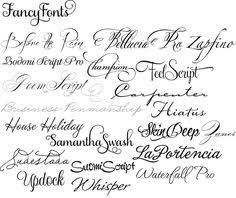 FancyFonts
Before the Rain Bellucia Pro Zapfino
Bodoni Script Pro Champion Feel Script
Geom Script Carpenter
Business Penmanship Hiatus
House Holiday SkinDeep
Samantha Swash LaPortencia
Suomi Script
Updock Whisper Waterfall Pro